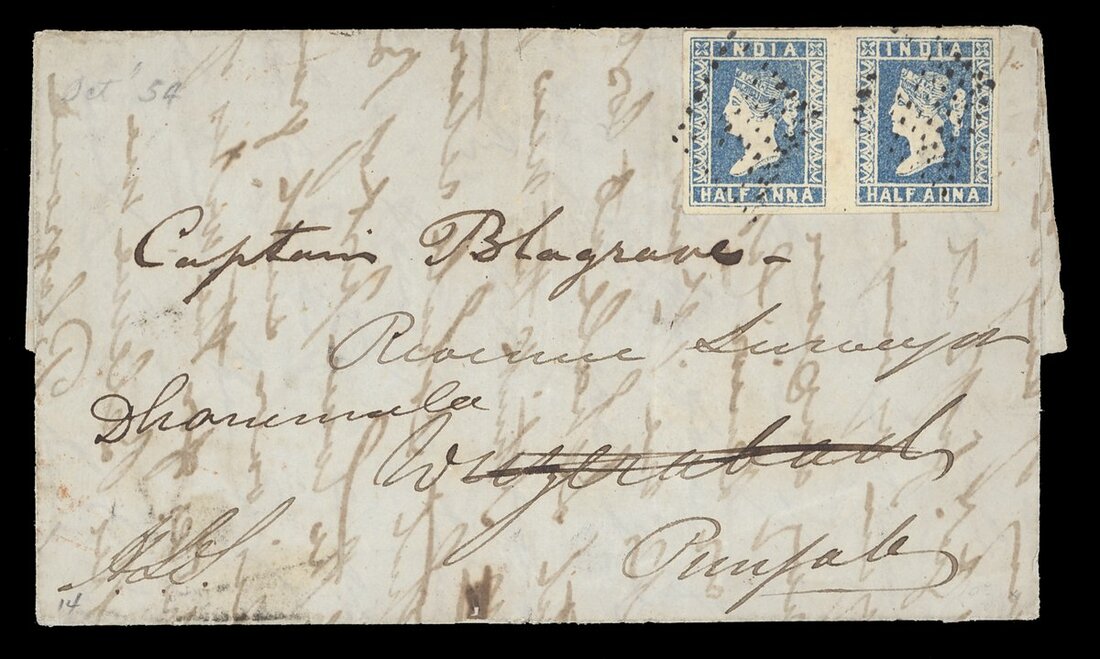 Oct '54
INDIA INDIA
HALF ANNA HALF ANNA
Captain Blagrave -
Revenue Surveyor
Dharumsala
Wuzerabad
Punjab
14